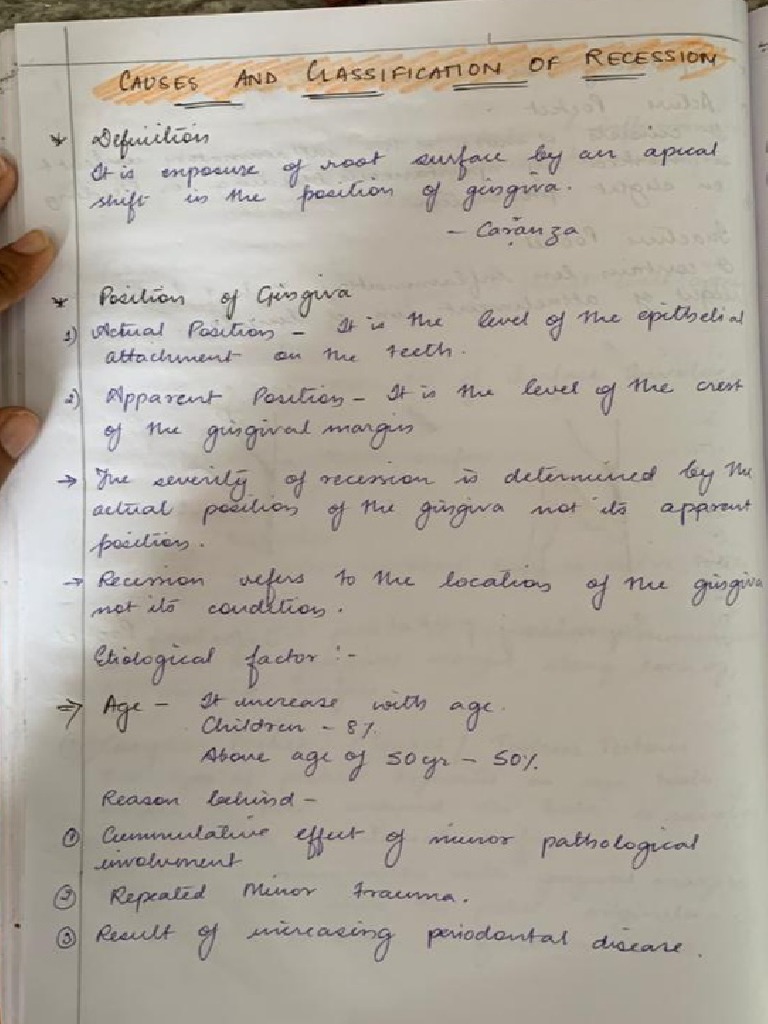 CAUSES AND CLASSIFICATION OF RECESSION
* Definition
It is exposure of root surface by an apical
shift in the position of gingiva.
- Caranza
* Position of Gingiva
1) Actual Position - It is the level of the epithelial
attachment on the teeth.
2) Apparent Position - It is the level of the crest
of the gingival margin
→ The severity of recession is determined by the
actual position of the gingiva not its apparent
position.
→ Recession refers to the location of the gingiva
not its condition.
Etiological factor :-
⇒ Age - It increase with age.
Children - 8%
Above age of 50yr - 50%
Reason behind -
① Cummulative effect of minor pathological
involvment
② Repeated Minor trauma.
③ Result of increasing periodontal disease.